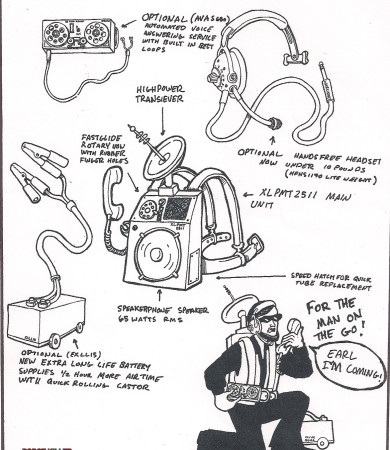 OPTIONAL (AVAS600)
AUTOMATED VOICE
ANSWERING SERVICE
WITH BUILT IN BEST
LOOPS
HIGH POWER
TRANSIEVER
FASTGLIDE
ROTARY DIAL
WITH RUBBER
FINGER HOLES
OPTIONAL HANDSFREE HEADSET
NOW UNDER 10 POUNDS
LITE WEIGHT)
XLPMT2511 MAIN
UNIT
SPEED HATCH FOR QUICK
TUBE REPLACEMENT
SPEAKERPHONE SPEAKER
65 WATTS RMS
OPTIONAL (EXLLIS)
NEW EXTRA LONG LIFE BATTERY
SUPPLIES 1/2 HOUR MORE AIRTIME
WITH QUICK ROLLING CASTOR
FOR THE
MAN ON
THE GO!
EARL
I'M COMING!